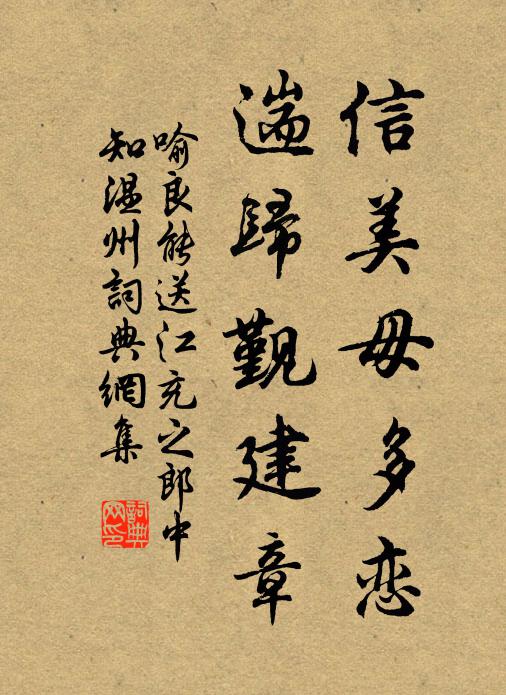 信美毋多恋
遄歸覲建章
喻良能送江充之郎中
知温州詞典網集
詞典
网印